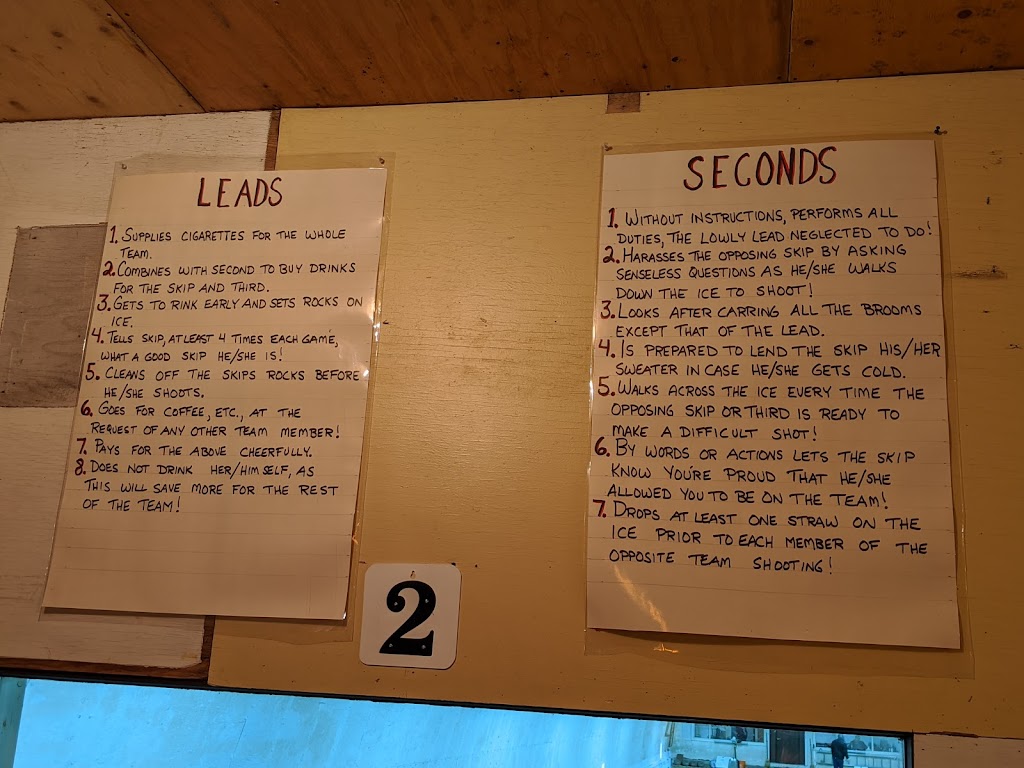 LEADS
1. SUPPLIES CIGARETTES FOR THE WHOLE
TEAM.
2. COMBINES WITH SECOND TO BUY DRINKS
FOR THE SKIP AND THIRD.
3. GETS TO RINK EARLY AND SETS ROCKS ON
ICE.
4. TELLS SKIP, AT LEAST 4 TIMES EACH GAME,
WHAT A GOOD SKIP HE/SHE IS!
5. CLEANS OFF THE SKIPS ROCKS BEFORE
HE/SHE SHOOTS.
6. GOES FOR COFFEE, ETC., AT THE
REQUEST OF ANY OTHER TEAM MEMBER!
7. PAYS FOR THE ABOVE CHEERFULLY.
8. DOES NOT DRINK HER/HIMSELF, AS
THIS WILL SAVE MORE FOR THE REST
OF THE TEAM!
SECONDS
1. WITHOUT INSTRUCTIONS, PERFORMS ALL
DUTIES, THE LOWLY LEAD NEGLECTED TO DO!
2. HARASSES THE OPPOSING SKIP BY ASKING
SENSELESS QUESTIONS AS HE/SHE WALKS
DOWN THE ICE TO SHOOT!
3. LOOKS AFTER CARRING ALL THE BROOMS
EXCEPT THAT OF THE LEAD.
4. IS PREPARED TO LEND THE SKIP HIS/HER
SWEATER IN CASE HE/SHE GETS COLD.
5. WALKS ACROSS THE ICE EVERY TIME THE
OPPOSING SKIP OR THIRD IS READY TO
MAKE A DIFFICULT SHOT!
6. BY WORDS OR ACTIONS LETS THE SKIP
KNOW YOU'RE PROUD THAT HE/SHE
ALLOWED YOU TO BE ON THE TEAM!
7. DROPS AT LEAST ONE STRAW ON THE
ICE PRIOR TO EACH MEMBER OF THE
OPPOSITE TEAM SHOOTING!
2